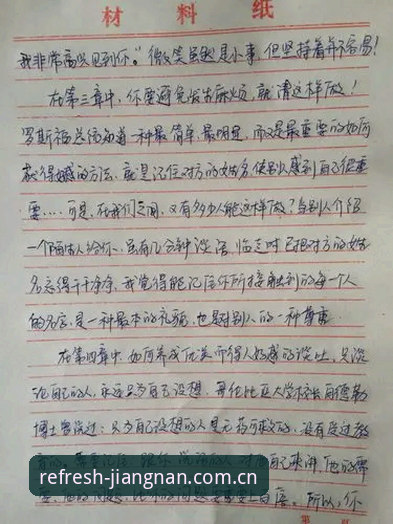 材料纸
我非常高兴见到你。"微笑虽然是小事，但坚持着并不容易！
在第三章中，你要避免发生麻烦，就请这样做！
罗斯福总统知道一种最简单、最明显，而又是最重要的如何
获得好感的方法，就是记住对方的姓名，使别人感到自己很重
要……可是，在我们之间，又有多少人能这样做？当别人介绍
一个陌生人给你，虽有几分钟谈话，临走时已把对方的姓
名忘得干干净净。我觉得能记住你所接触到的每一个人
的名字，是一种最基本的礼貌，也是对别人的一种尊重。
在第四章中 如何养成优美而得人好感的谈吐，只谈
论自己的人，永远只为自己设想。哥伦比亚大学校长白德勒
博士曾说过：只为自己设想的人是无药可救的，没有受过教
refresh-jiangnan.com
所以，你
第 页